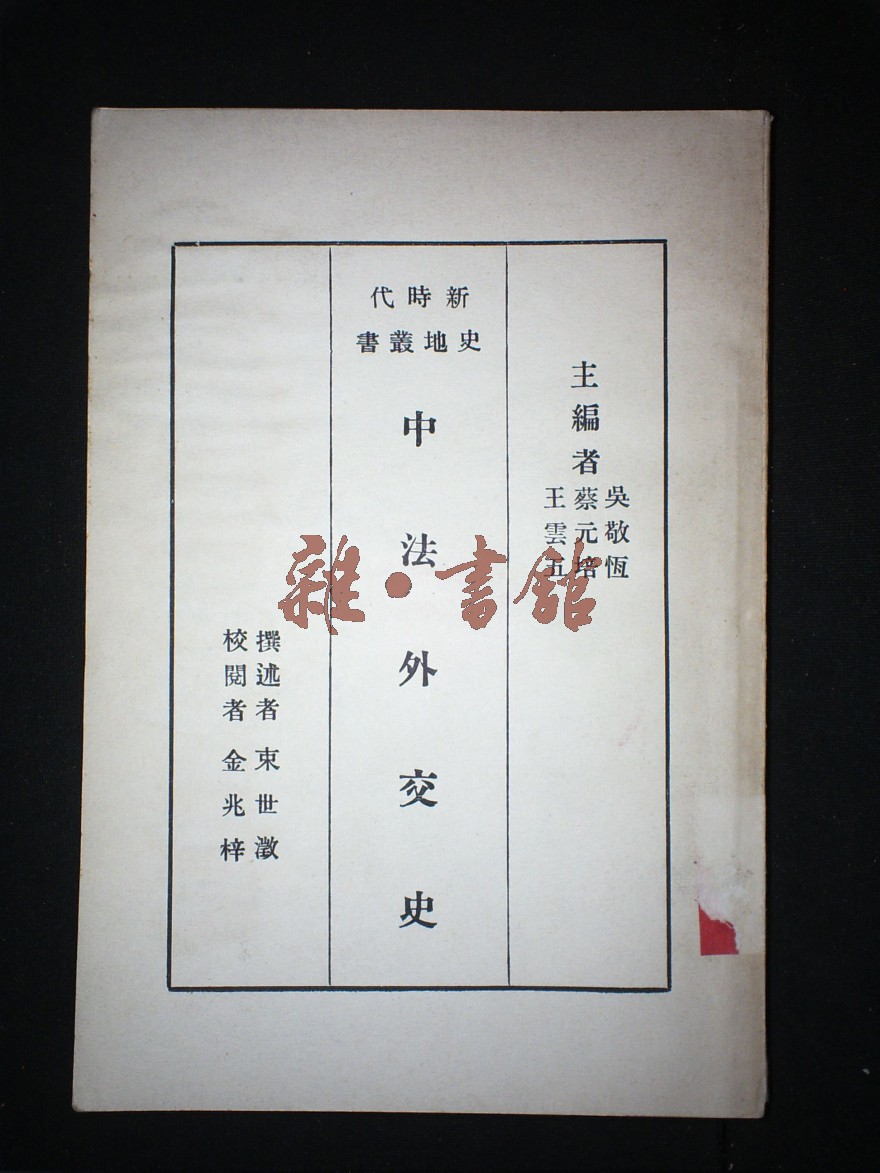 主編者
吳敬恆
蔡元培
王雲五
新時代
史地叢書
中法外交史
撰述者 束世澂
校閱者 金兆梓
雜·書館